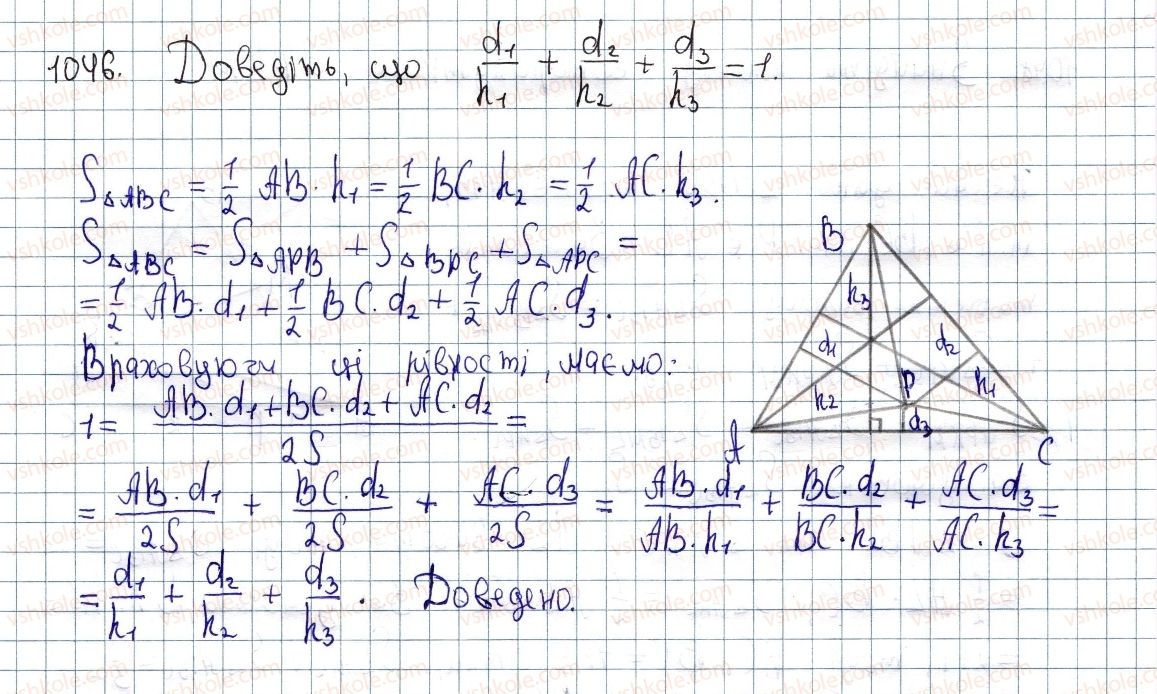 1046. Доведіть, що d₁/h₁ + d₂/h₂ + d₃/h₃ = 1.
S△ABC = 1/2 AB · h₁ = 1/2 BC · h₂ = 1/2 AC · h₃.
S△ABC = S△APB + S△BPC + S△APC =
= 1/2 AB · d₁ + 1/2 BC · d₂ + 1/2 AC · d₃.
Враховуючи ці рівності, маємо:
1 = (AB · d₁ + BC · d₂ + AC · d₂)/2S =
= AB · d₁/2S + BC · d₂/2S + AC · d₃/2S = AB · d₁/AB · h₁ + BC · d₂/BC · h₂ + AC · d₃/AC · h₃ =
= d₁/h₁ + d₂/h₂ + d₃/h₃. Доведено.
B
h₃
d₁ d₂
h₂ P h₁
A d₃ C
vshkole.com